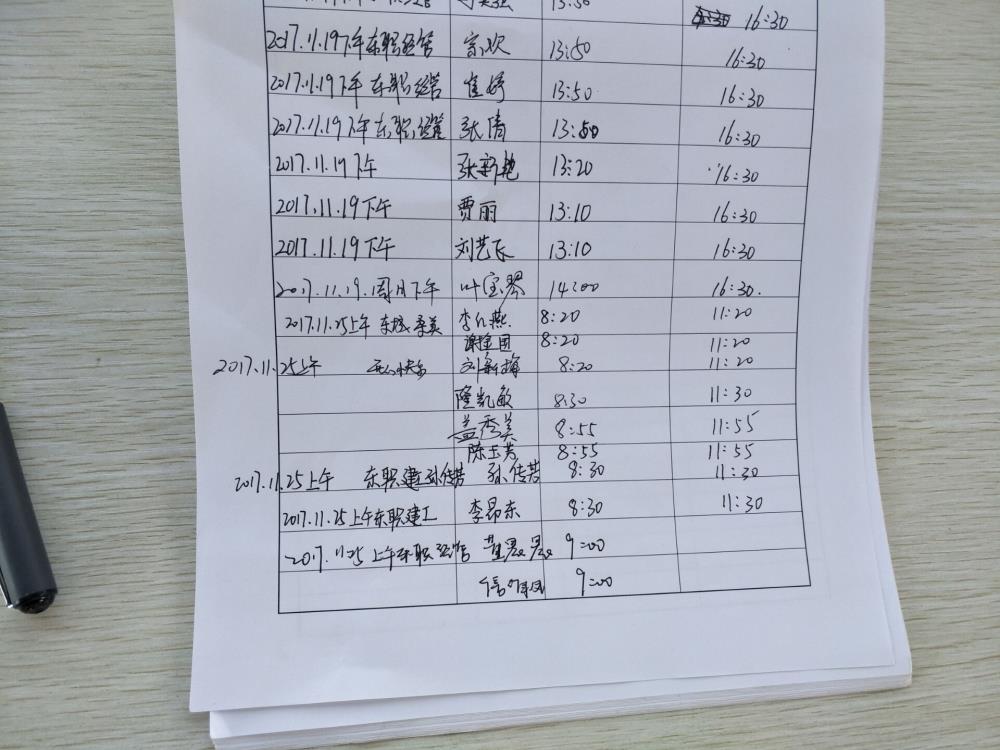 13:50 16:30
2017.11.19下午东职经管 宗欢 13:50 16:30
2017.11.19下午东职经管 崔婷 13:50 16:30
2017.11.19下午东职经管 张倩 13:50 16:30
2017.11.19下午 张新艳 13:20 16:30
2017.11.19下午 贾丽 13:10 16:30
2017.11.19下午 刘艺飞 13:10 16:30
2017.11.19.周日下午 叶宝琴 14:00 16:30.
2017.11.25上午 李仁燕. 8:20 11:20
谢金国 8:20 11:20
2017.11.25上午 刘新梅 8:20 11:20
隆凯敏 8:30 11:30
盖秀美 8:55 11:55
陈玉芳 8:55 11:55
2017.11.25上午 东职建工孙传芳 孙传芳 8:30 11:30
2017.11.25上午东职建工 李昂东 8:30 11:30
2017.11.25上午东职经管 9:00
9:00